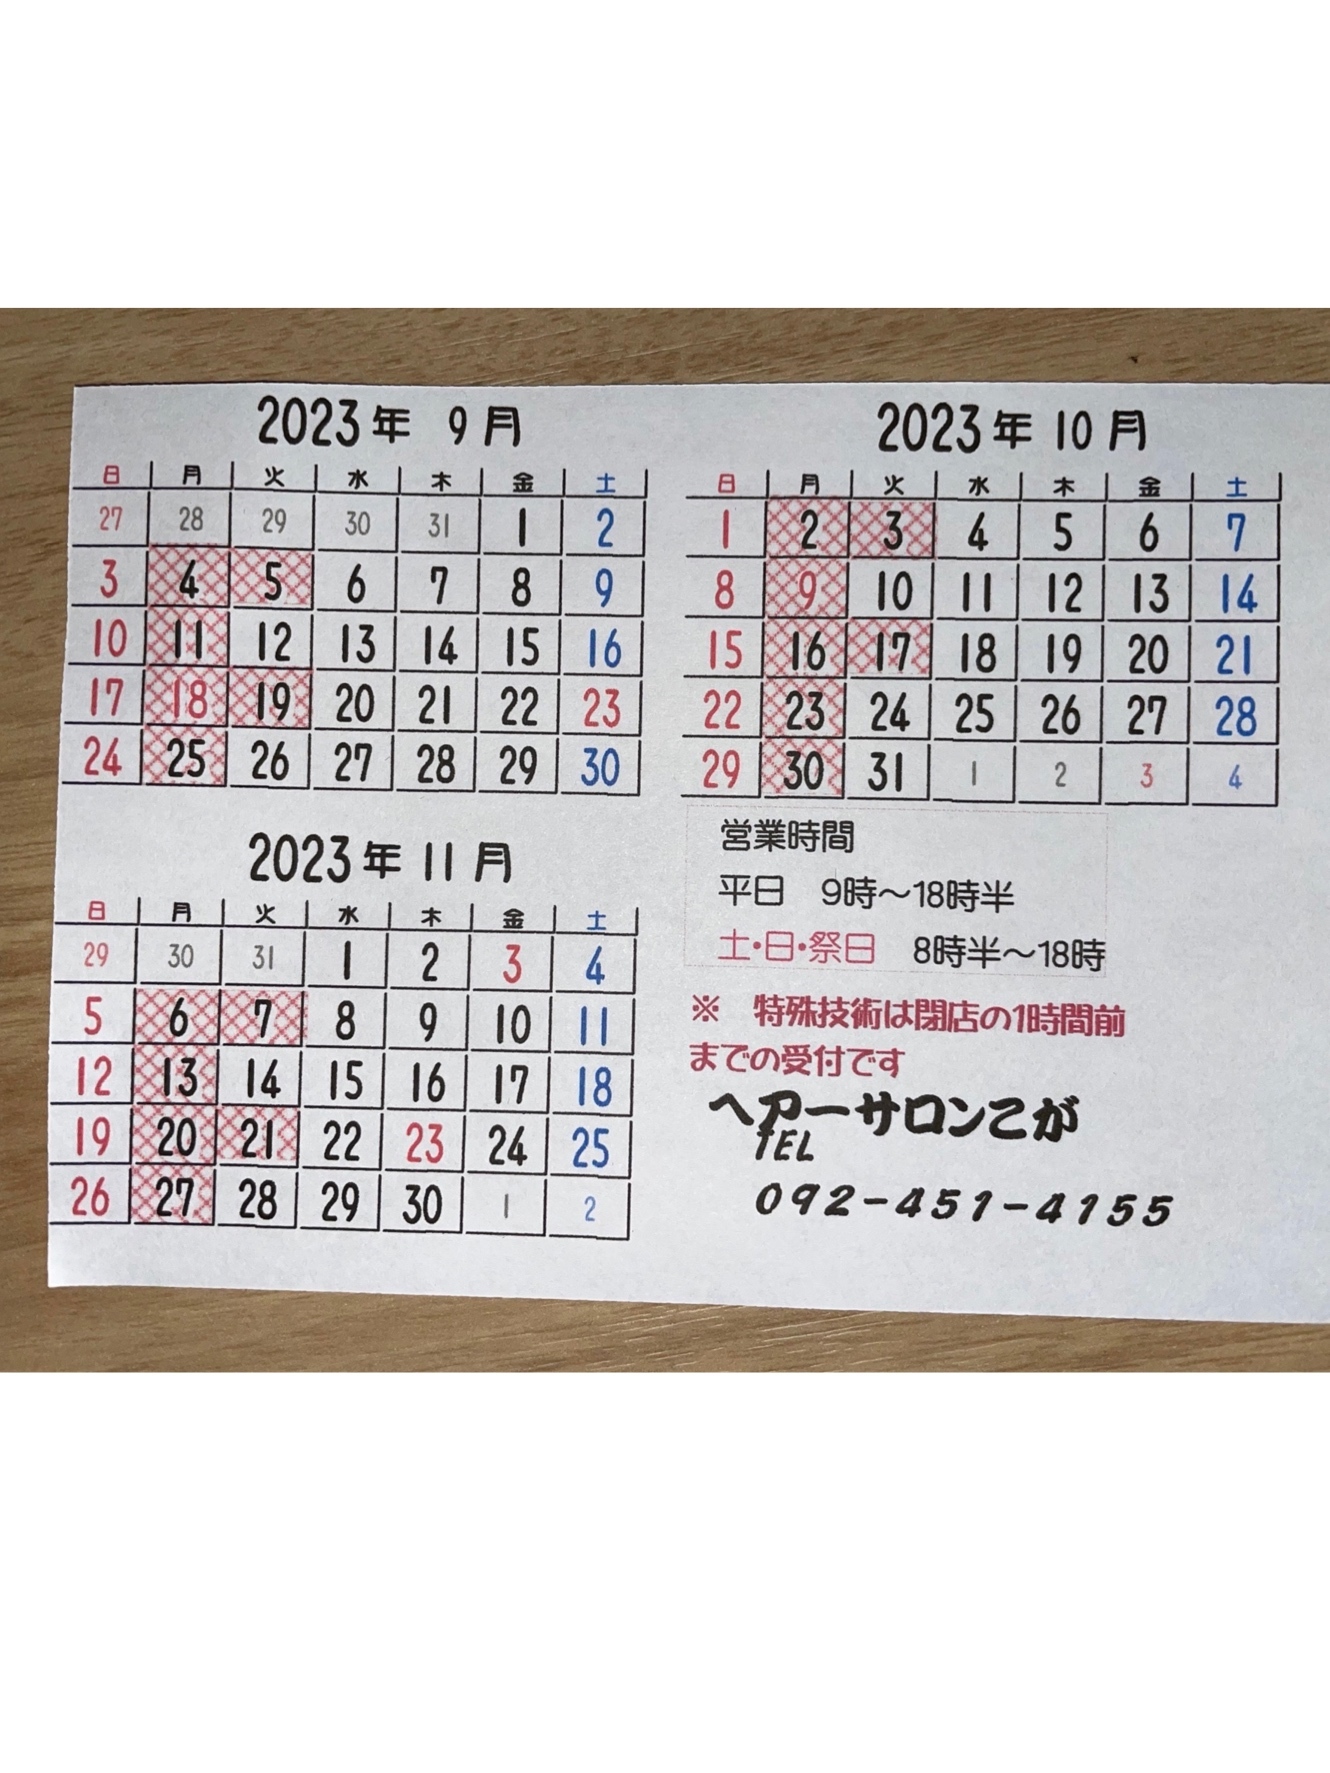 2023年 9月
日 月 火 水 木 金 土
27 28 29 30 31 1 2
3 4 5 6 7 8 9
10 11 12 13 14 15 16
17 18 19 20 21 22 23
24 25 26 27 28 29 30
2023年 10月
日 月 火 水 木 金 土
1 2 3 4 5 6 7
8 9 10 11 12 13 14
15 16 17 18 19 20 21
22 23 24 25 26 27 28
29 30 31 1 2 3 4
2023年 11月
日 月 火 水 木 金 土
29 30 31 1 2 3 4
5 6 7 8 9 10 11
12 13 14 15 16 17 18
19 20 21 22 23 24 25
26 27 28 29 30 1 2
営業時間
平日 9時～18時半
土・日・祭日 8時半～18時
※ 特殊技術は閉店の1時間前
までの受付です
ヘアーサロンこが
TEL
092-451-4155